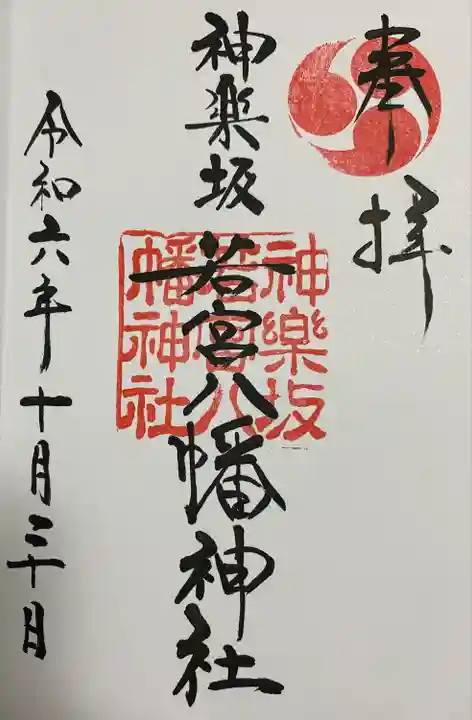 奉拝
神楽坂 若宮八幡神社
神樂坂
若宮八
幡神社
令和六年十月三十日